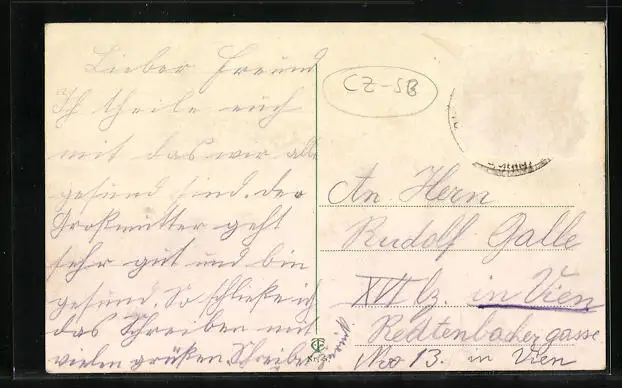 Lieber Freund
Ich theile euch
mit das wir alle
gesund sind. der
Großmutter geht
sehr gut und bin
gesund. So schließe ich
das Schreiben mit
vielen grüßen. Schreibe
CZ-SB
An Hern
Rudolf Galle
XVII/2. in Vien
Redtenbachergasse
Nro 13. in Vien